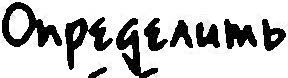 Определить